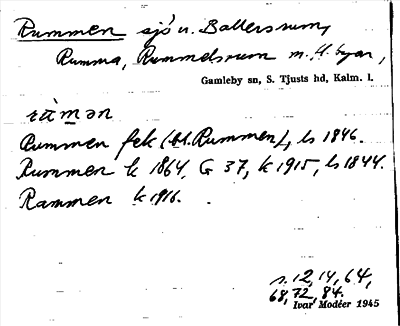 Rummen sjö v. Ballersrum,
Rumma, Rummelsrum m. fl. byar,
Gamleby sn, S. Tjusts hd, Kalm. l.
Rummen fek (bl. Rummen), ls 1846.
Rummen k 1864, G 37, k 1915, ls 1844.
Rammen k 1916.
s. 12, 14, 64,
68, 72, 84.
Ivar Modéer 1945